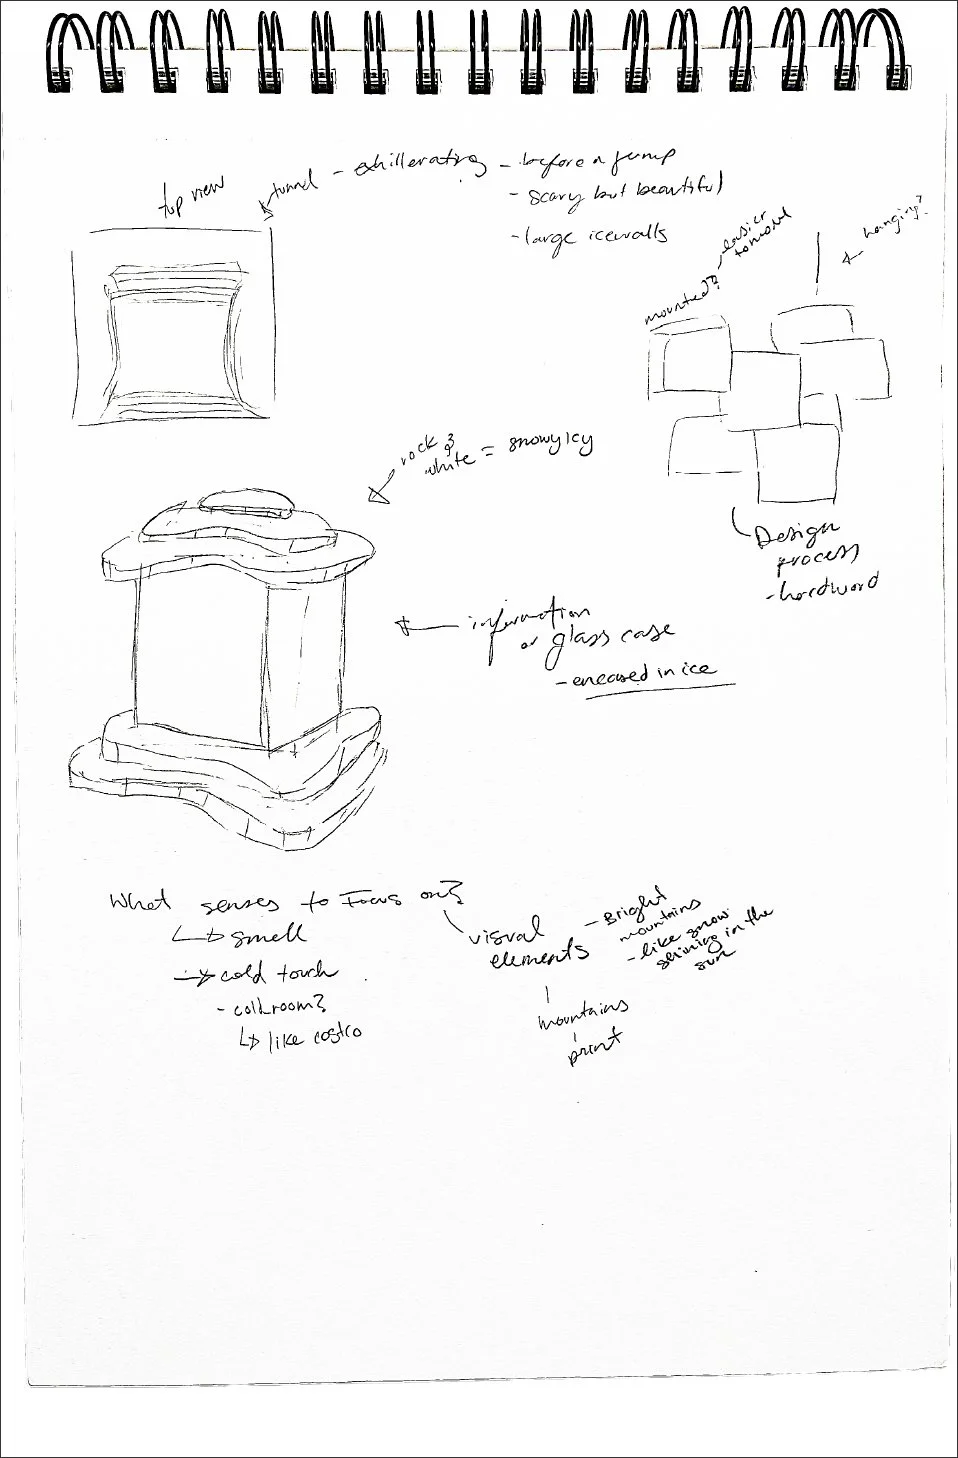 top view
tunnel - exhillerating - before a jump
- scary but beautiful
- large icewalls
mounted?
easier
to mount
hanging?
rock &
white = snowy icy
Design
process
- hardword
information
or glass case
- encased in ice
What senses to Focus on?
smell
cold touch
- coldroom?
like costco
visual
elements
- Bright
mountains
- like snow
shining in the
sun
mountains
print